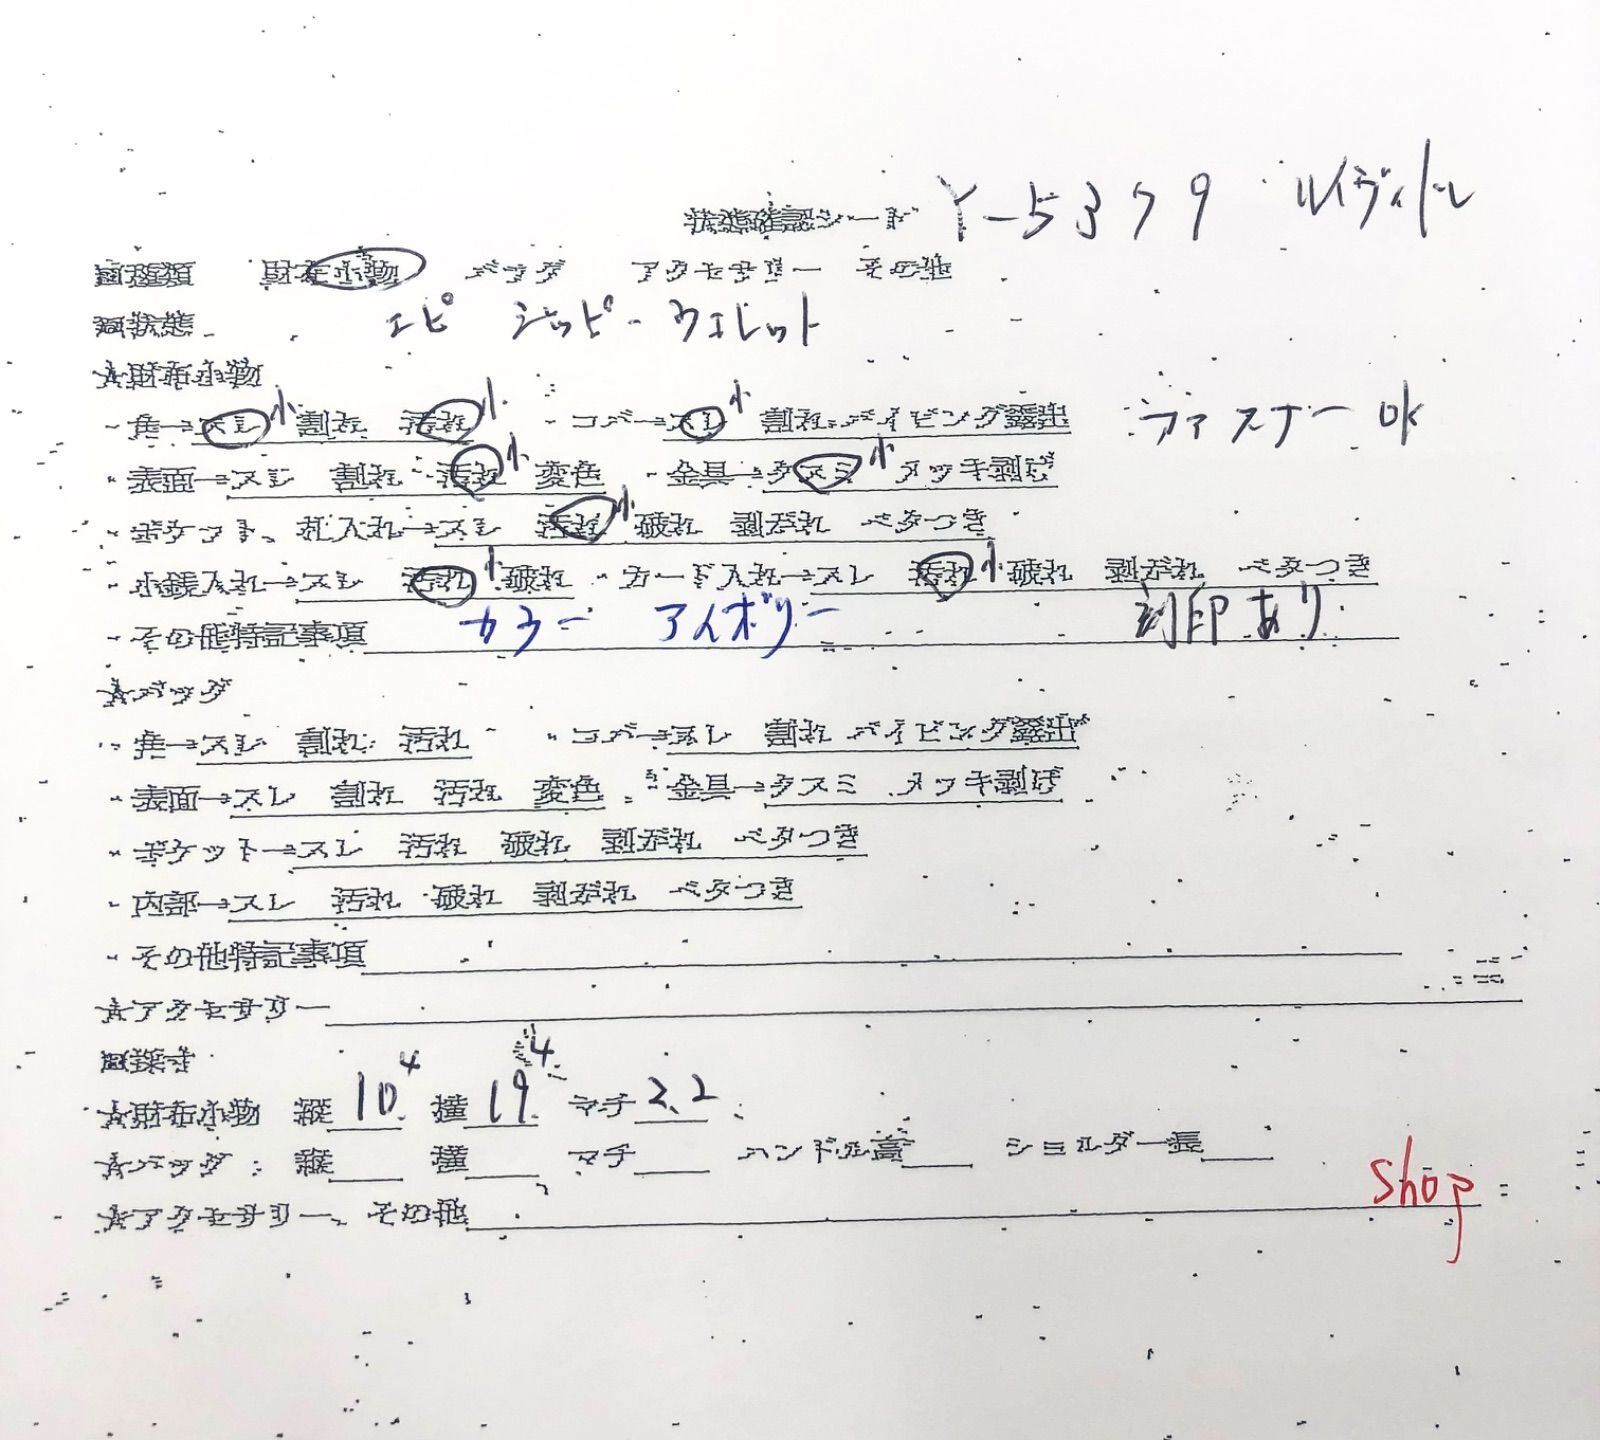 状態確認シート Y-5379 ルイヴィトン
□種類 財布小物 バッグ アクセサリー その他
□状態 エピ ジッピーウォレット
☆財布小物
・角→スレ小 割れ 汚れ小 ・コバ→スレ小 割れ パイピング露出 ファスナーOK
・表面→スレ 割れ 汚れ小 変色 ・金具→クスミ小 メッキ剥げ
・ポケット、札入れ→スレ 汚れ小 破れ 剥がれ ベタつき
・小銭入れ→スレ 汚れ小 破れ ・カード入れ→スレ 汚れ小 破れ 剥がれ ベタつき
・その他特記事項 カラー アイボリー 刻印あり
☆バッグ
・角→スレ 割れ 汚れ ・コバ→スレ 割れ パイピング露出
・表面→スレ 割れ 汚れ 変色 ・金具→クスミ メッキ剥げ
・ポケット→スレ 汚れ 破れ 剥がれ ベタつき
・内部→スレ 汚れ 破れ 剥がれ ベタつき
・その他特記事項
☆アクセサリー
□採寸
☆財布小物 縦 10.4 横 19.4 マチ 2.2
☆バッグ 縦 横 マチ ハンドル高 ショルダー長
☆アクセサリー、その他 shop